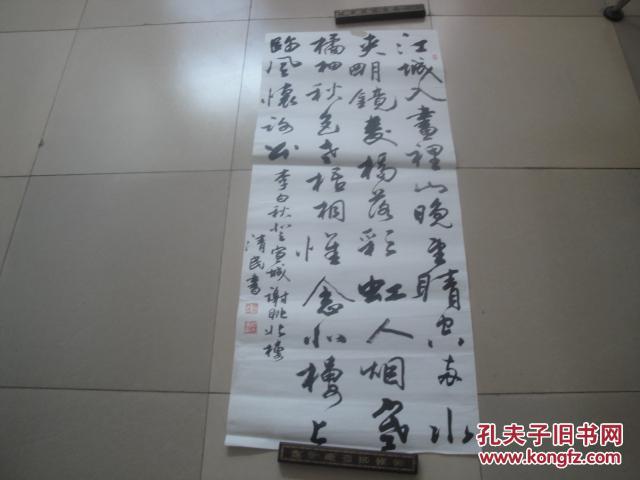 江城入畫裡山晚望晴空兩水
夾明鏡雙橋落彩虹人烟寒
橘柚秋色老梧桐惟念北樓上
臨風懷謝公
李白秋登宣城謝眺北樓
清民書
孔夫子旧书网
www.kongfz.com